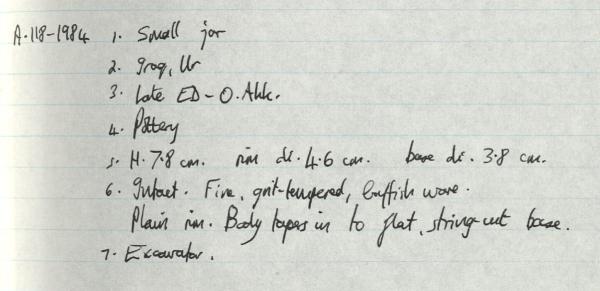 A.118-1984 1. Small jar
2. Iraq, Ur
3. Late ED - O. Akk.
4. Pottery
5. H. 7.8 cm. rim di. 4.6 cm. base di. 3.8 cm.
6. Intact. Fine, grit-tempered, buffish ware.
Plain rim. Body tapers in to flat, string-cut base.
7. Excavator.